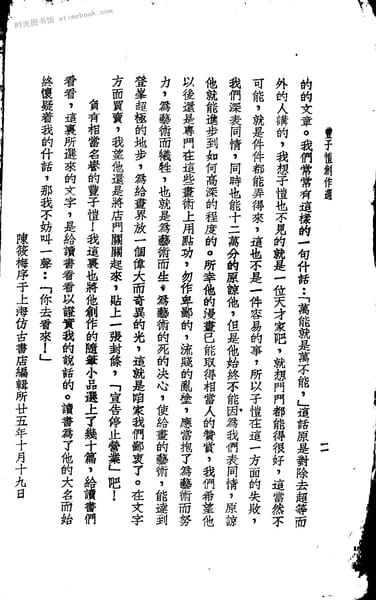 时光图书馆 - atimebook.com
豐子愷創作選
二
的的文章。我們常常有這樣的一句什話：「萬能就是萬不能，」這話原是對除去超等而
外的人講的，我想子愷也不見的就是一位天才家吧，就想門門都能得很好，這當然不
可能，就是件件都能弄得來，這也不是一件容易的事，所以子愷在這一方面的失敗，
我們深表同情，同時也能十二萬分的原諒他，但是他始終不能因為我們表同情，原諒
他就能進步到如何高深的程度的。所幸他的漫畫已能取得相當人的贊賞，我們希望他
以後還是專門在這些畫術上用點功，勿作卑鄙的，流賤的亂塗，應當抱了為藝術而努
力，為藝術而犧牲，也就是為藝術而生，為藝術的死的决心，使給畫的藝術，能達到
登峯超極的地步，為給畫界放一個偉大而奇異的光，這就是咱家我們鄙衷了。在文字
方面買賣，我望他還是將店門關關起來，貼上一張封條，「宣告停止營業」吧！
負有相當名譽的豐子愷！我這裏也將他創作的隨筆小品選上了幾十篇，給讀書們
看看，這裏所選來的文字，是給讀書看看以證實我的說話的。讀書為了他的大名而始
終懷疑着我的什話，那我不妨叫一聲：「你去看來！」
陳筱梅序于上海仿古書店編輯所廿五年十月十九日